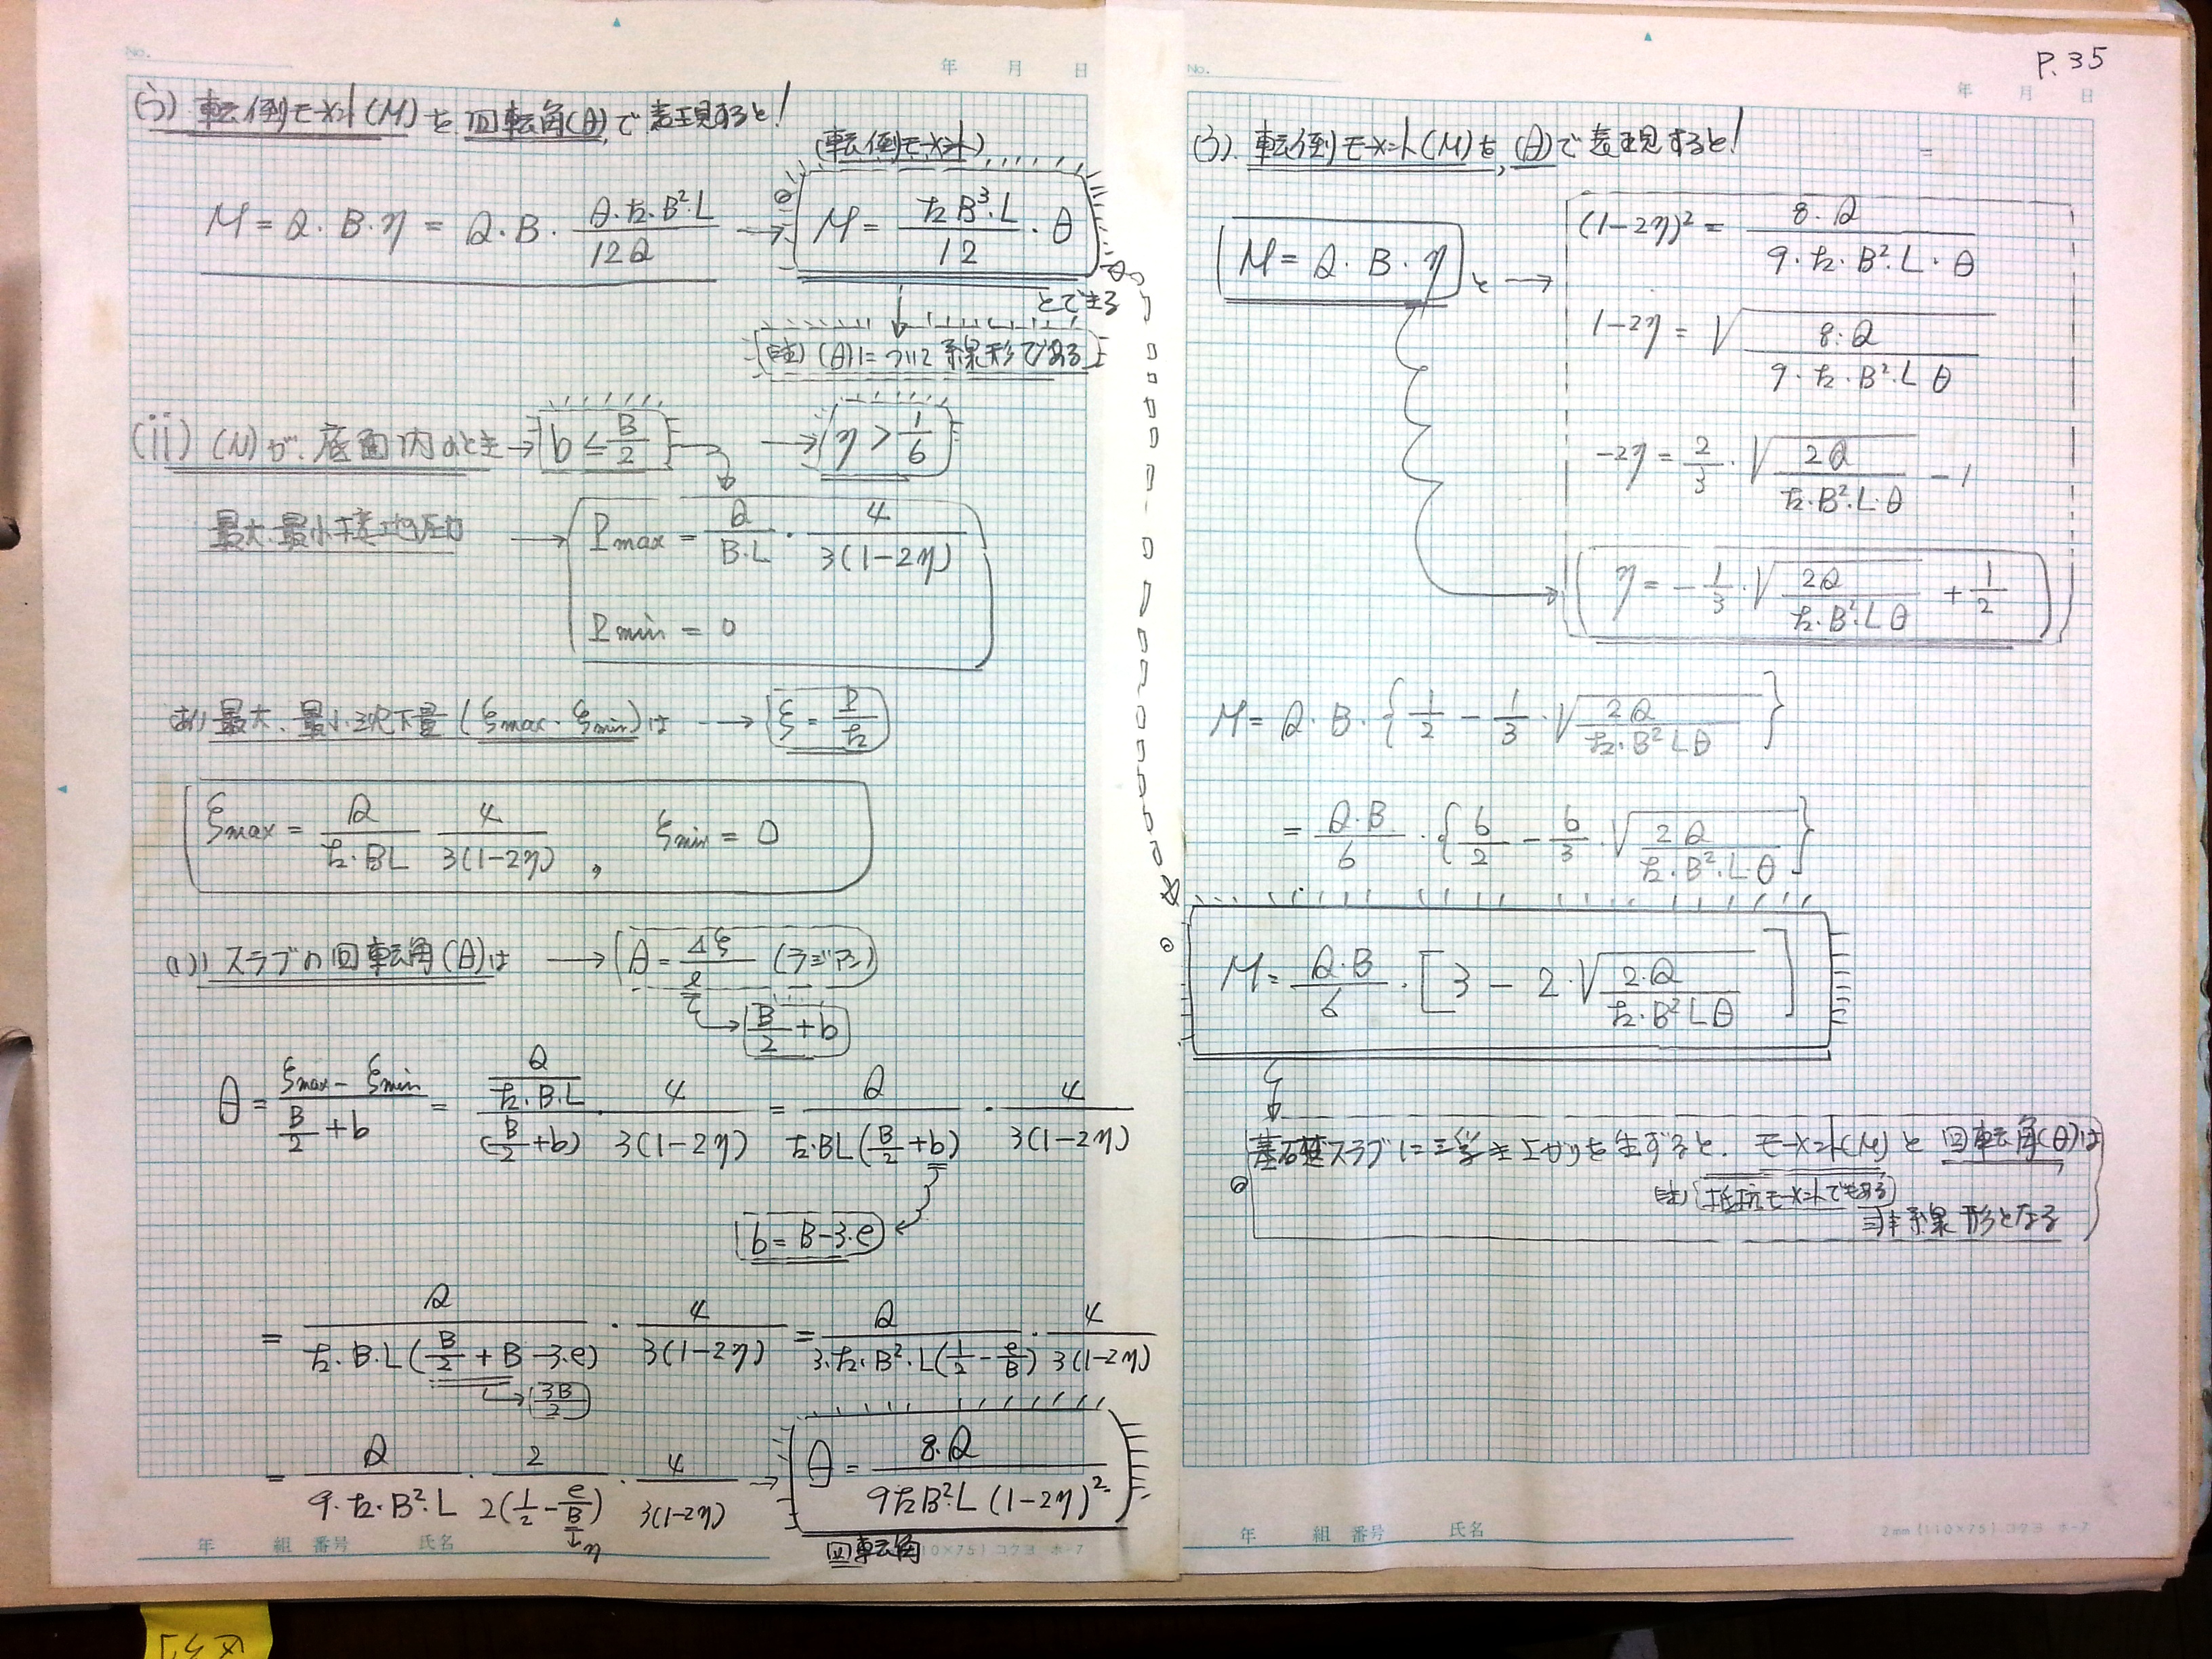 No.
年 月 日
(う) 転倒モーメント(M)を回転角(θ)で表現すると!
(転倒モーメント)
M = Q・B・η = Q・B・(θ・k・B²・L)/(12Q) → M = (kB³・L)/12・θ
とできる
(注) (θ)について線形である
(ii) (N)が、底面内のとき → b ≦ B/2 → η > 1/6
最大、最小接地圧 → Pmax = Q/(B・L)・4/(3(1-2η))
Pmin = 0
(あ) 最大、最小沈下量 (ξmax・ξmin)は → ξ = P/k
ξmax = Q/(k・BL) 4/(3(1-2η)), ξmin = 0
(い) スラブの回転角(θ)は → θ = Δξ/l (ラジアン)
→ B/2 + b
θ = (ξmax - ξmin)/(B/2 + b) = (Q/(k・B・L))/(B/2 + b)・4/(3(1-2η)) = Q/(k・BL(B/2 + b))・4/(3(1-2η))
b = B-3・e
= Q/(k・B・L(B/2 + B-3・e))・4/(3(1-2η)) = Q/(3・k・B²・L(1/2 - e/B))・4/(3(1-2η))
→ 3B/2
= Q/(9・k・B²・L)・2/(2(1/2 - e/B))・4/(3(1-2η)) → θ = 8・Q/(9kB²・L(1-2η)²)
↓η
回転角
年 組 番号 氏名
10×75) コクヨ ホ-7
P.35
No.
年 月 日
(う). 転倒モーメント(M)を,(θ)で表現すると!
=
M = Q・B・η と → (1-2η)² = 8・Q/(9・k・B²・L・θ)
1-2η = √(8・Q/(9・k・B²・L θ))
-2η = 2/3・√(2Q/(k・B²・L・θ)) - 1
η = -1/3・√(2Q/(k・B²・Lθ)) + 1/2
M = Q・B・{1/2 - 1/3・√(2Q/(k・B²Lθ))}
= Q・B/6・{6/2 - 6/3・√(2Q/(k・B²・L・θ))}
M = Q・B/6・[3 - 2・√(2・Q/(k・B²Lθ))]
基礎スラブに浮き上がりを生ずると、モーメント(M)と回転角(θ)は
(注) (抵抗モーメントでもある)
非線形となる
年 組 番号 氏名
2mm (110×75) コクヨ ホ-7